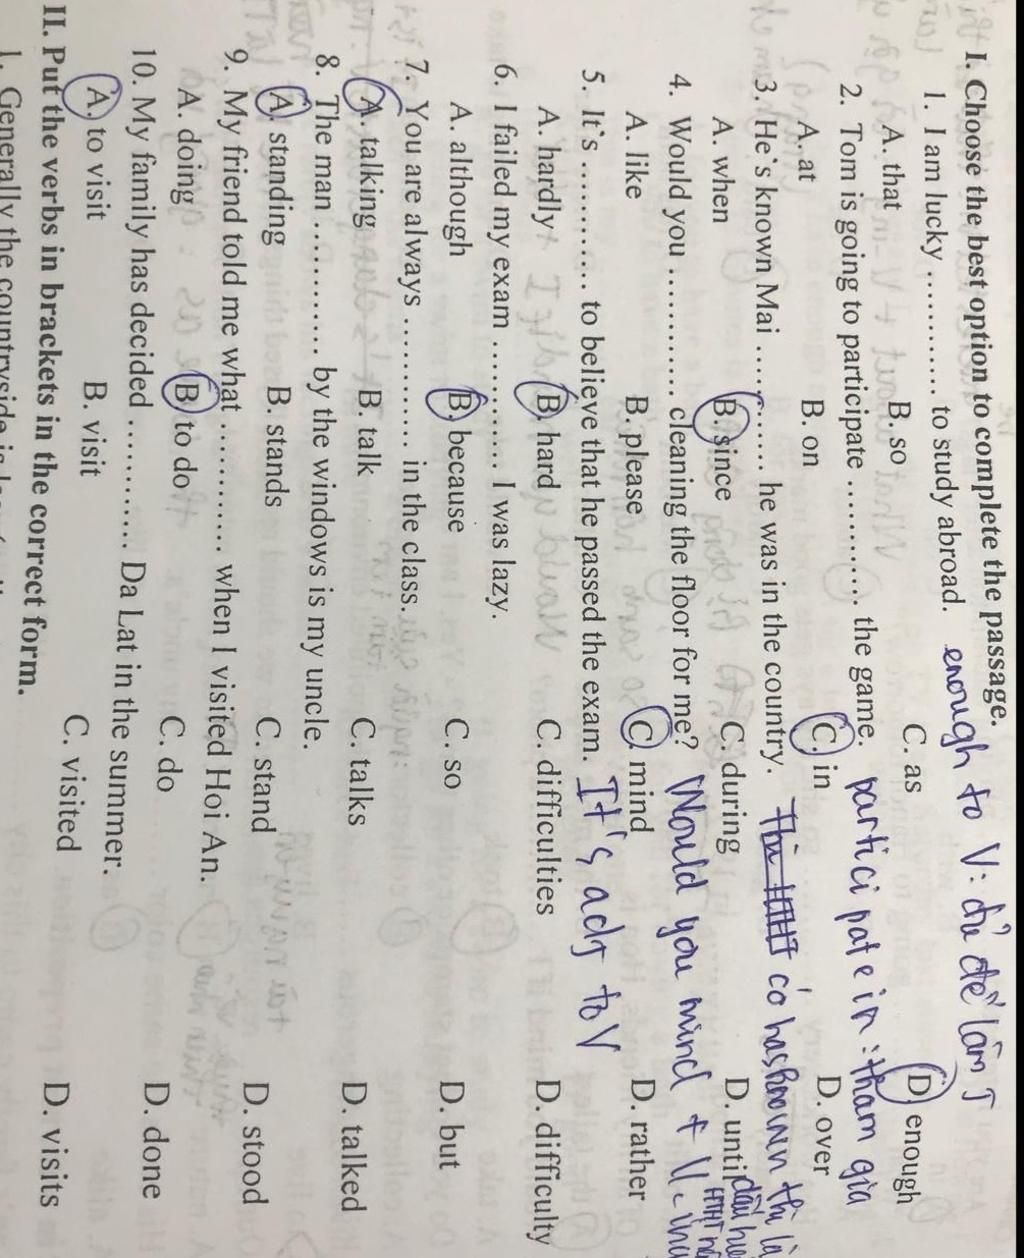 I. Choose the best option to complete the passage.
1. I am lucky ............ to study abroad. enough to V: đủ để làm
A. that B. so C. as D. enough
2. Tom is going to participate ............ the game. participate in: tham gia
A. at B. on C. in D. over
3. He`s known Mai ............ he was in the country. có has known thì là
A. when B. since C. during D. until dấu
4. Would you ............ cleaning the floor for me? Would you mind + V
A. like B. please C. mind D. rather
5. It`s ............ to believe that he passed the exam. It's adj to V
A. hardly B. hard C. difficulties D. difficulty
6. I failed my exam ............ I was lazy.
A. although B. because C. so D. but
7. You are always ............ in the class.
A. talking B. talk C. talks D. talked
8. The man ............ by the windows is my uncle.
A. standing B. stands C. stand D. stood
9. My friend told me what ............ when I visited Hoi An.
A. doing B. to do C. do D. done
10. My family has decided ............ Da Lat in the summer.
A. to visit B. visit C. visited D. visits
II. Put the verbs in brackets in the correct form.
1. Generally the countryside is